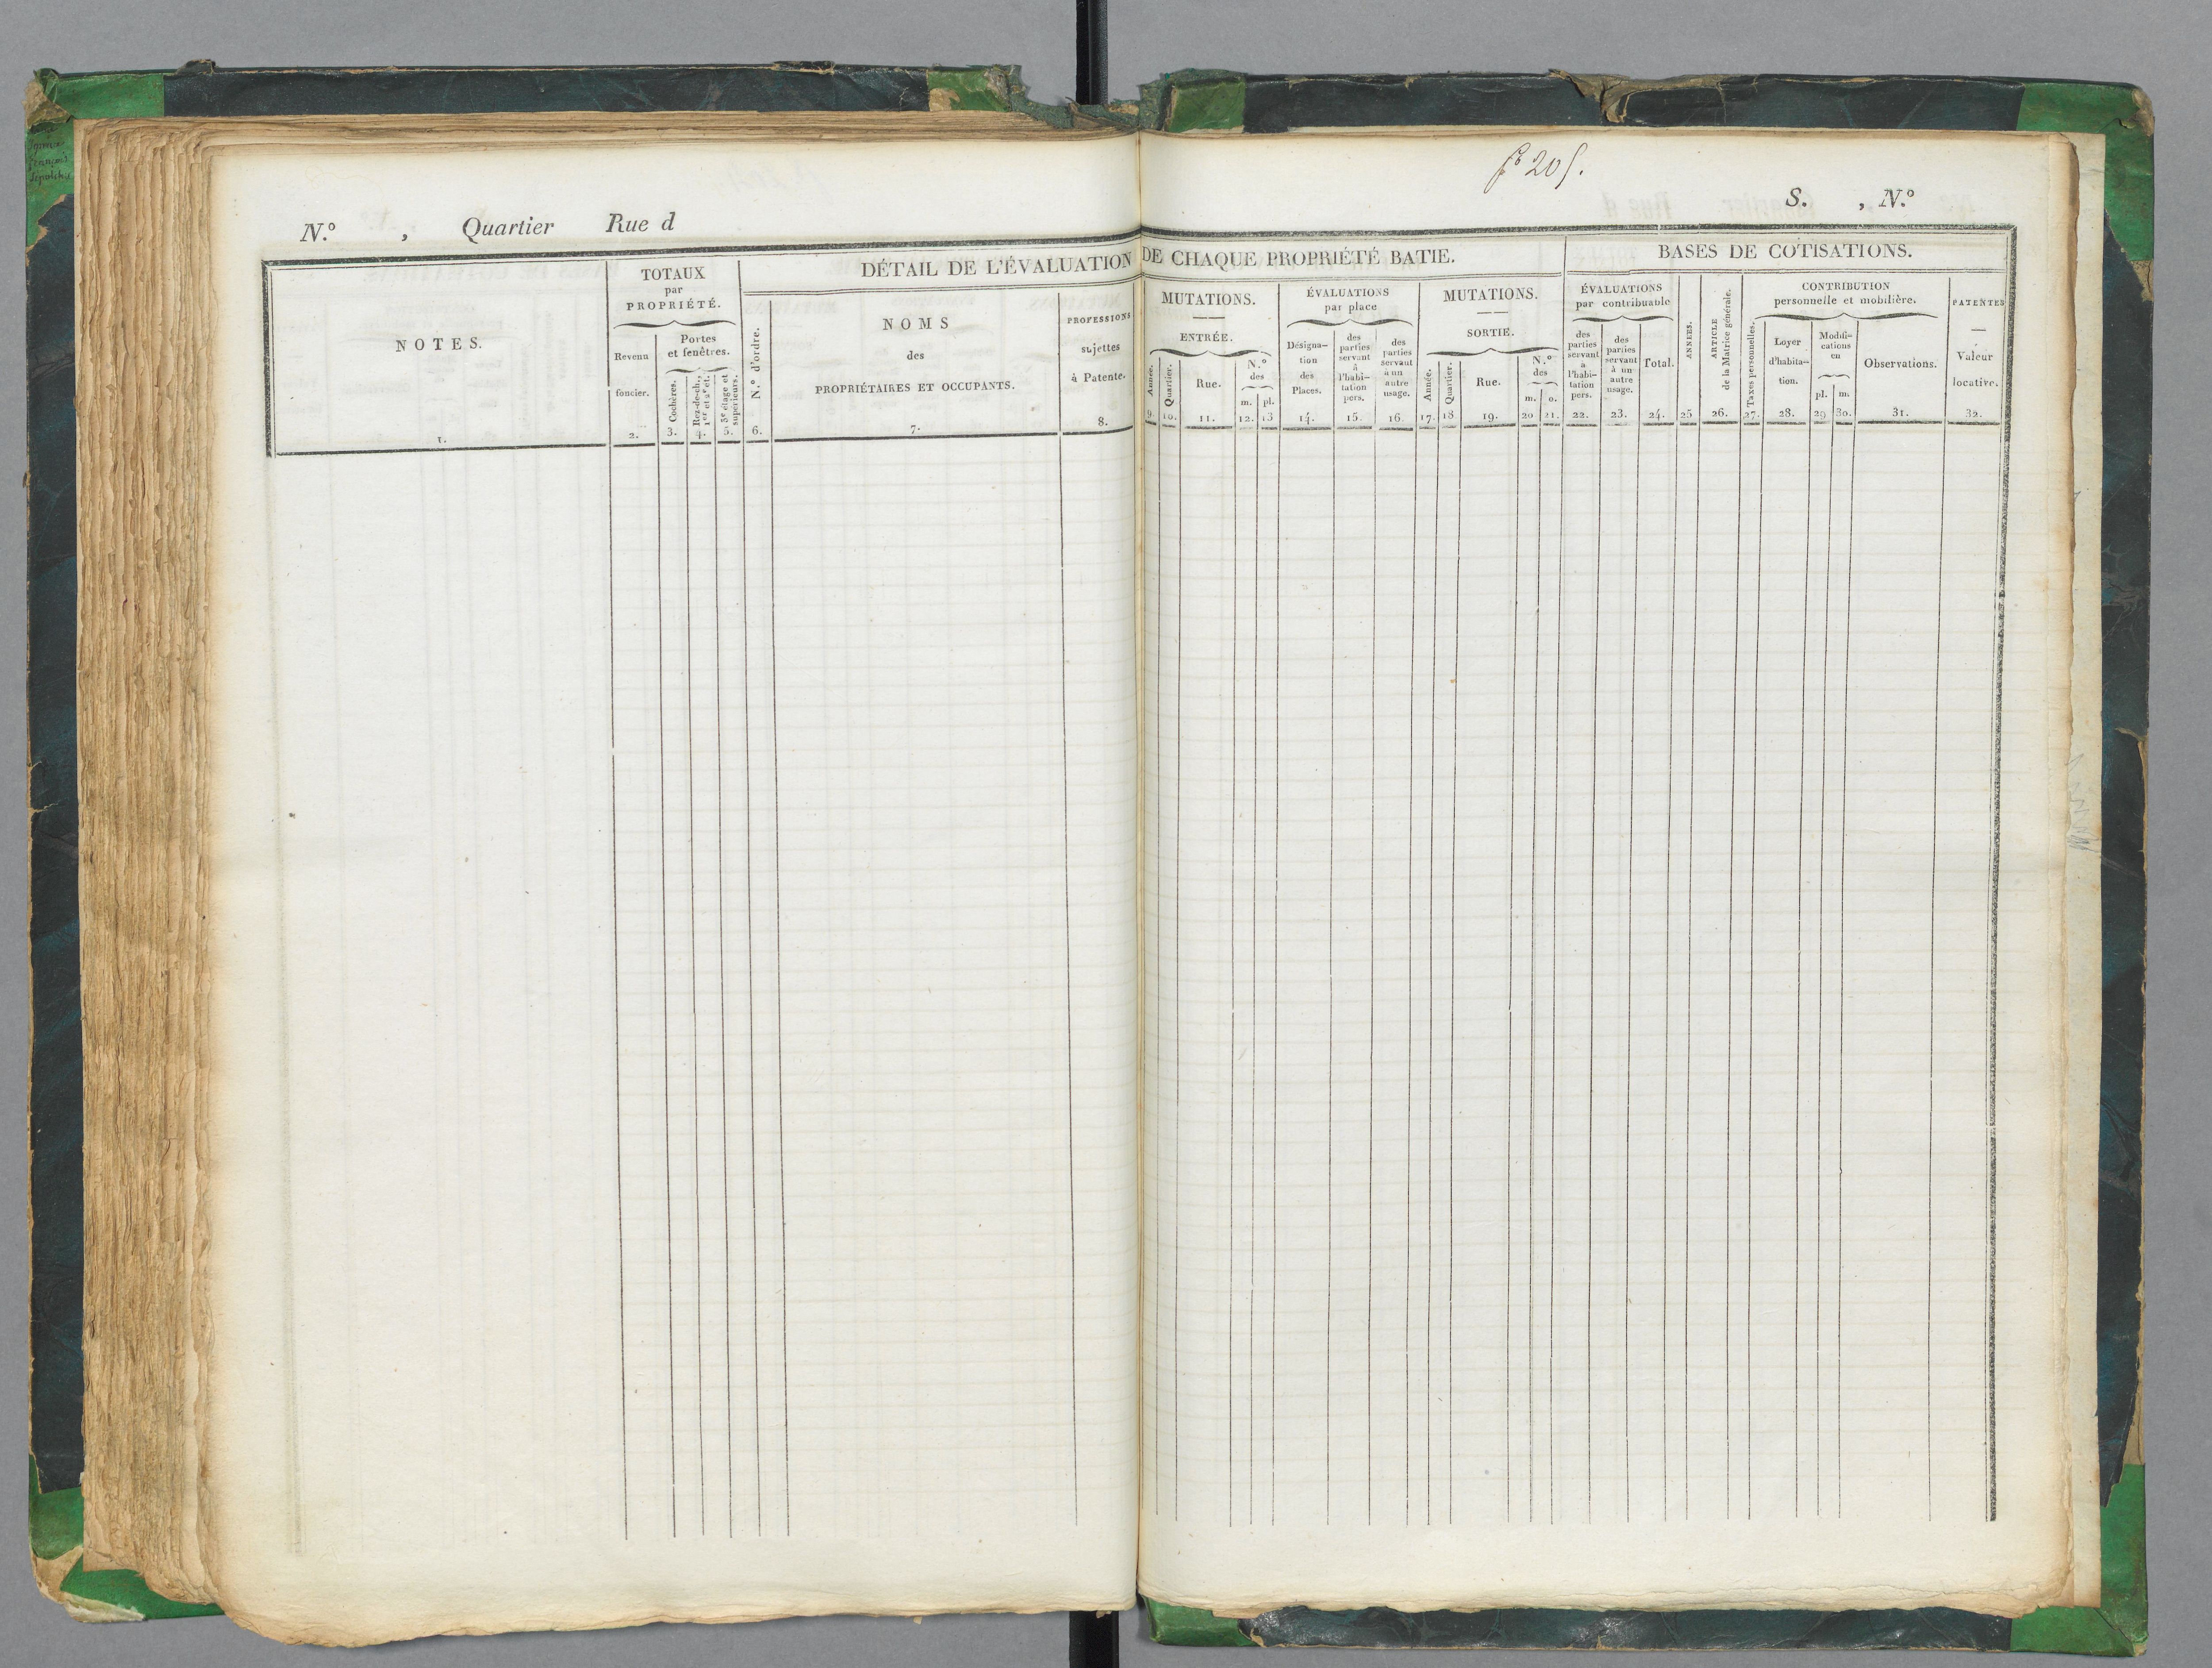 fº 205.
N.º , Quartier Rue d
S. , N.º
DÉTAIL DE L'ÉVALUATION DE CHAQUE PROPRIÉTÉ BATIE.
BASES DE COTISATIONS.
NOTES.
1.
TOTAUX
par
PROPRIÉTÉ.
Revenu
foncier.
2.
Portes
et fenêtres.
Cochères.
3.
Rez-de-ch.,
1er et 2e ét.
4.
3e étage et
supérieurs.
5.
N.º d'ordre.
6.
NOMS
des
PROPRIÉTAIRES ET OCCUPANTS.
7.
PROFESSIONS
sujettes
à Patente.
8.
MUTATIONS.
ENTRÉE.
Année.
9.
Quartier.
10.
Rue.
11.
N.º
des
m. pl.
12. 13
ÉVALUATIONS
par place
Désigna-
tion
des
Places.
14.
des
parties
servant
à
l'habi-
tation
pers.
15.
des
parties
servant
à un
autre
usage.
16.
MUTATIONS.
SORTIE.
Année.
17.
Quartier.
18.
Rue.
19.
N.º
des
m. o.
20 21.
ÉVALUATIONS
par contribuable
des
parties
servant
à
l'habi-
tation
pers.
22.
des
parties
servant
à un
autre
usage.
23.
Total.
24.
ANNÉES.
25
ARTICLE
de la Matrice générale.
26.
Taxes personnelles.
27.
CONTRIBUTION
personnelle et mobilière.
Loyer
d'habita-
tion.
28.
Modifi-
cations
en
pl. m.
29 30.
Observations.
31.
PATENTES
Valeur
locative.
32.